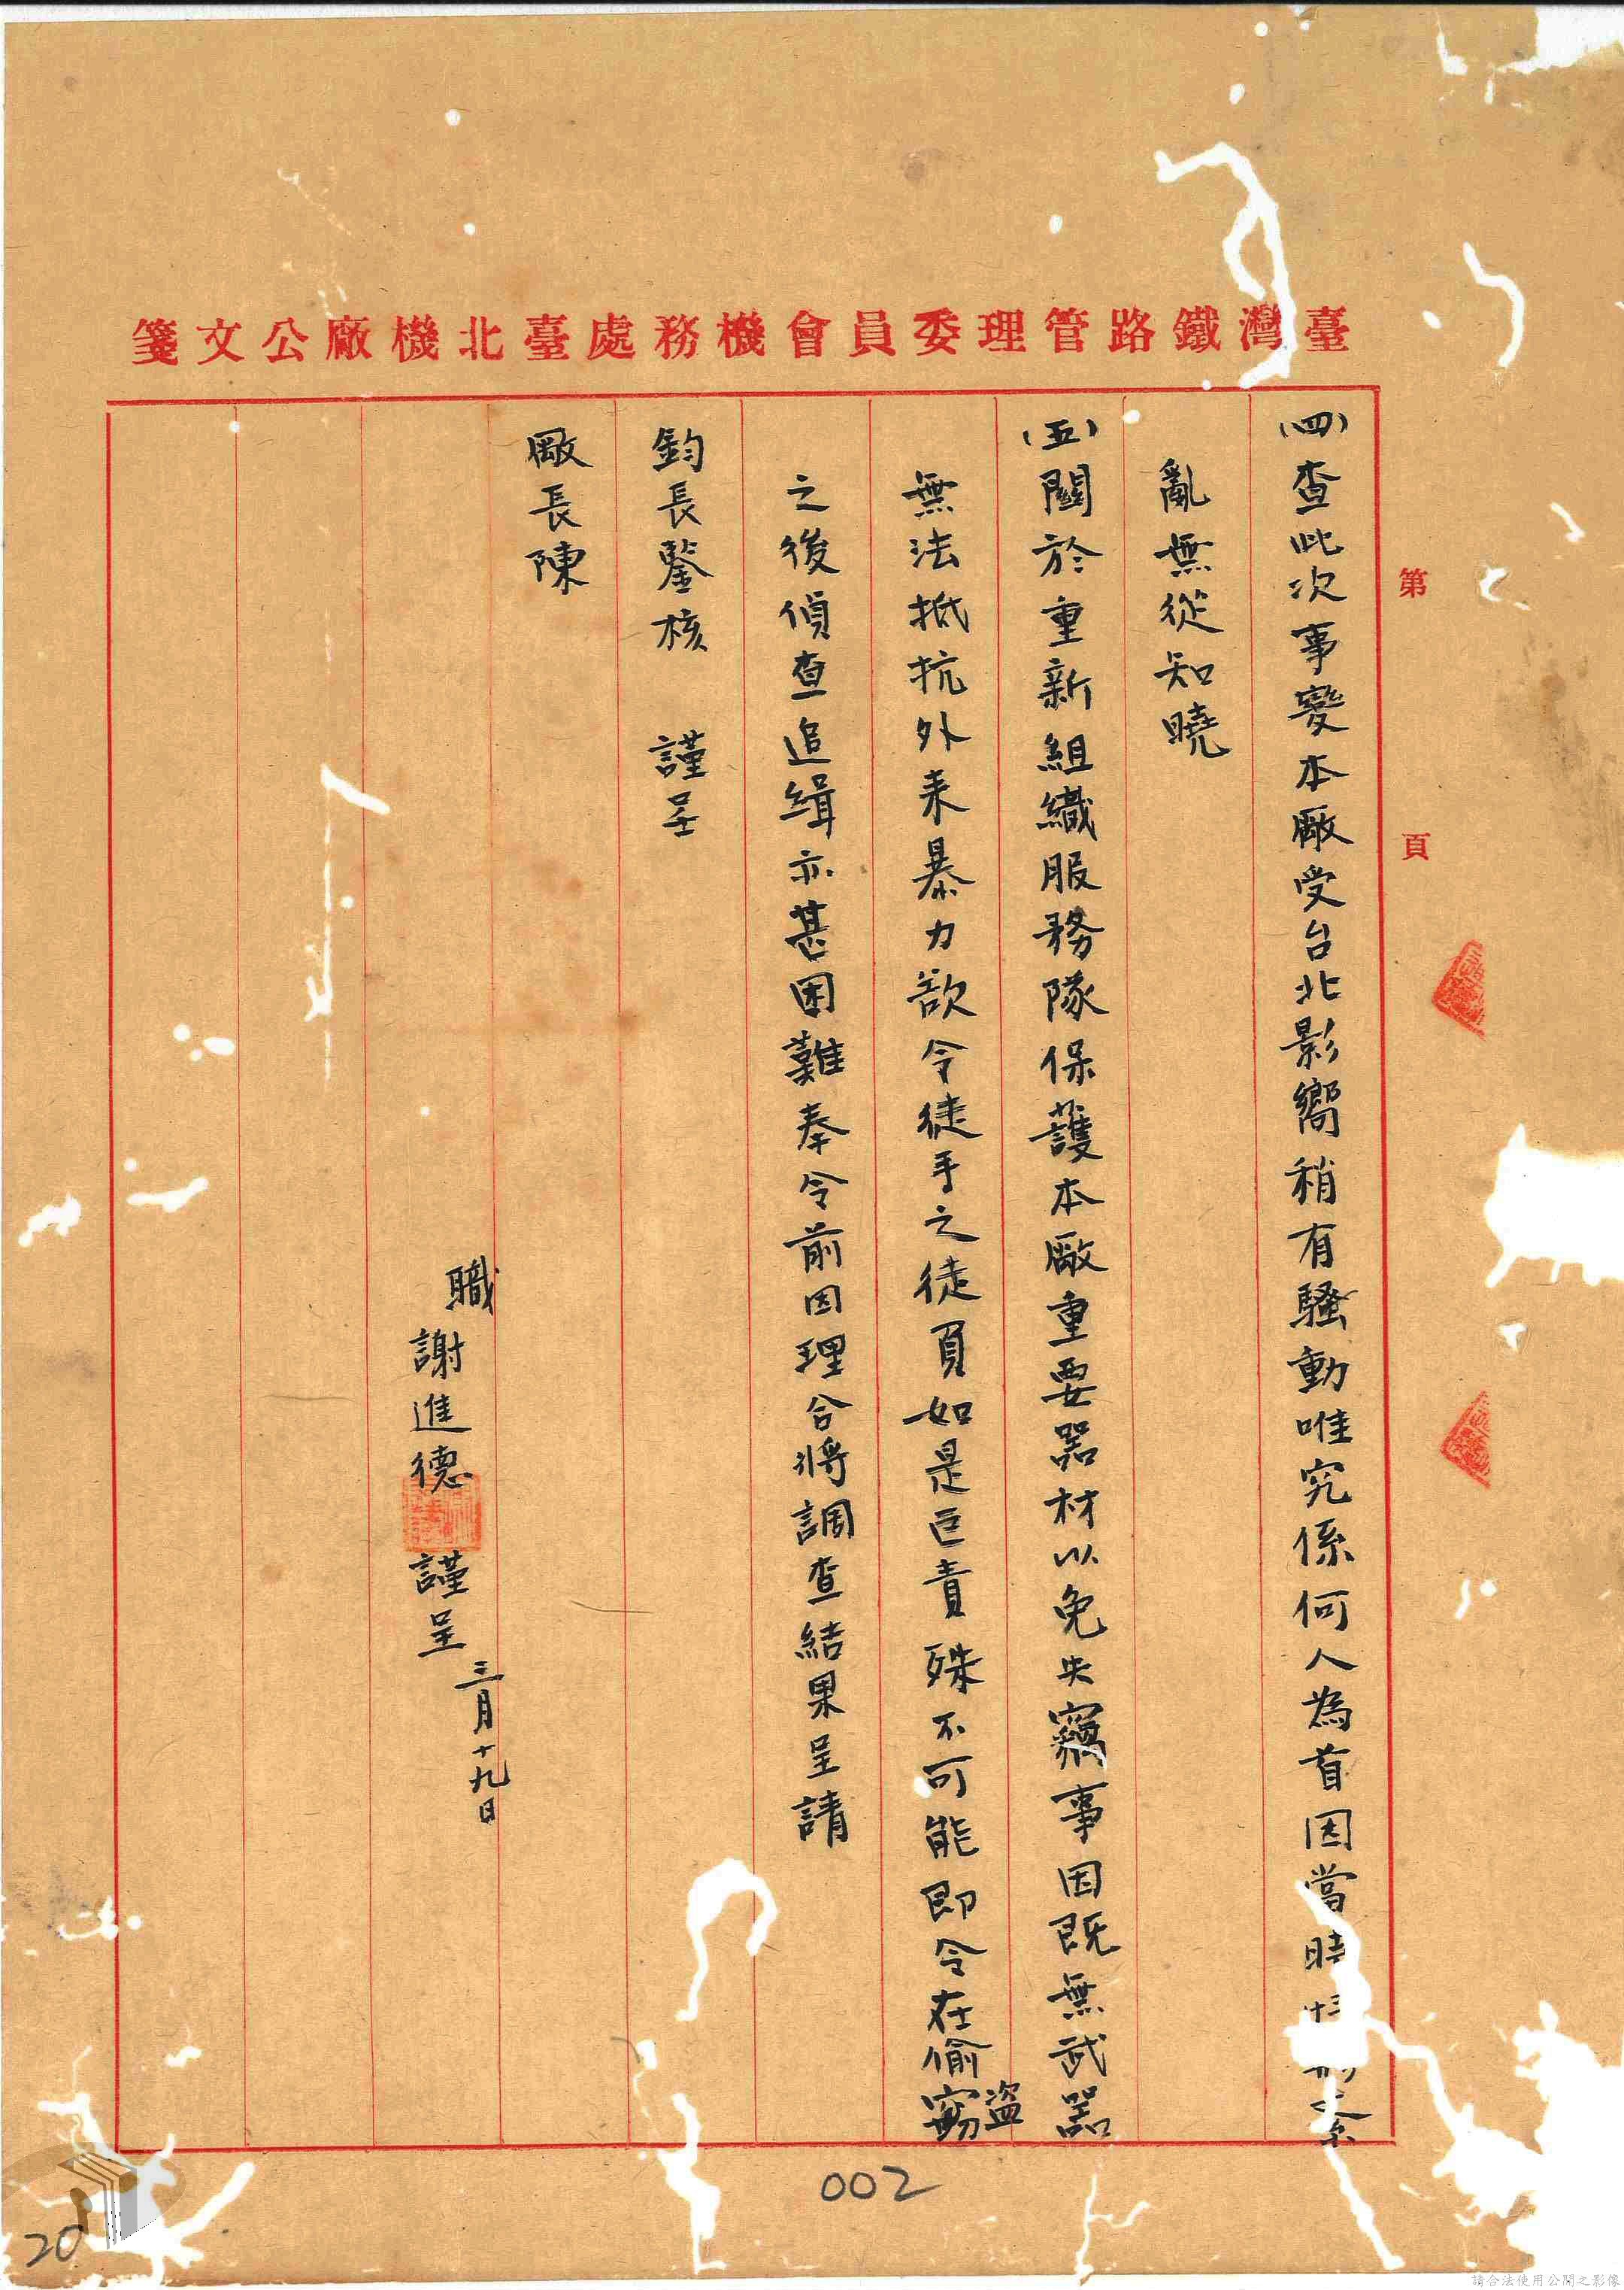 臺灣鐵路管理委員會機務處臺北機廠公文箋
第 頁
(四)查此次事變本廠受台北影嚮稍有騷動唯究係何人為首因當時情形紊
亂無從知曉
(五)關於重新組織服務隊保護本廠重要器材以免失竊事因既無武器
無法抵抗外来暴力欲令徒手之徒負如是巨責殊不可能即令在偷竊盜
之後偵查追緝亦甚困難奉令前因理合將調查結果呈請
鈞長鑒核 謹呈
廠長陳
職
謝進德 謹呈
三月十九日
002
20
請合法使用公開之影像